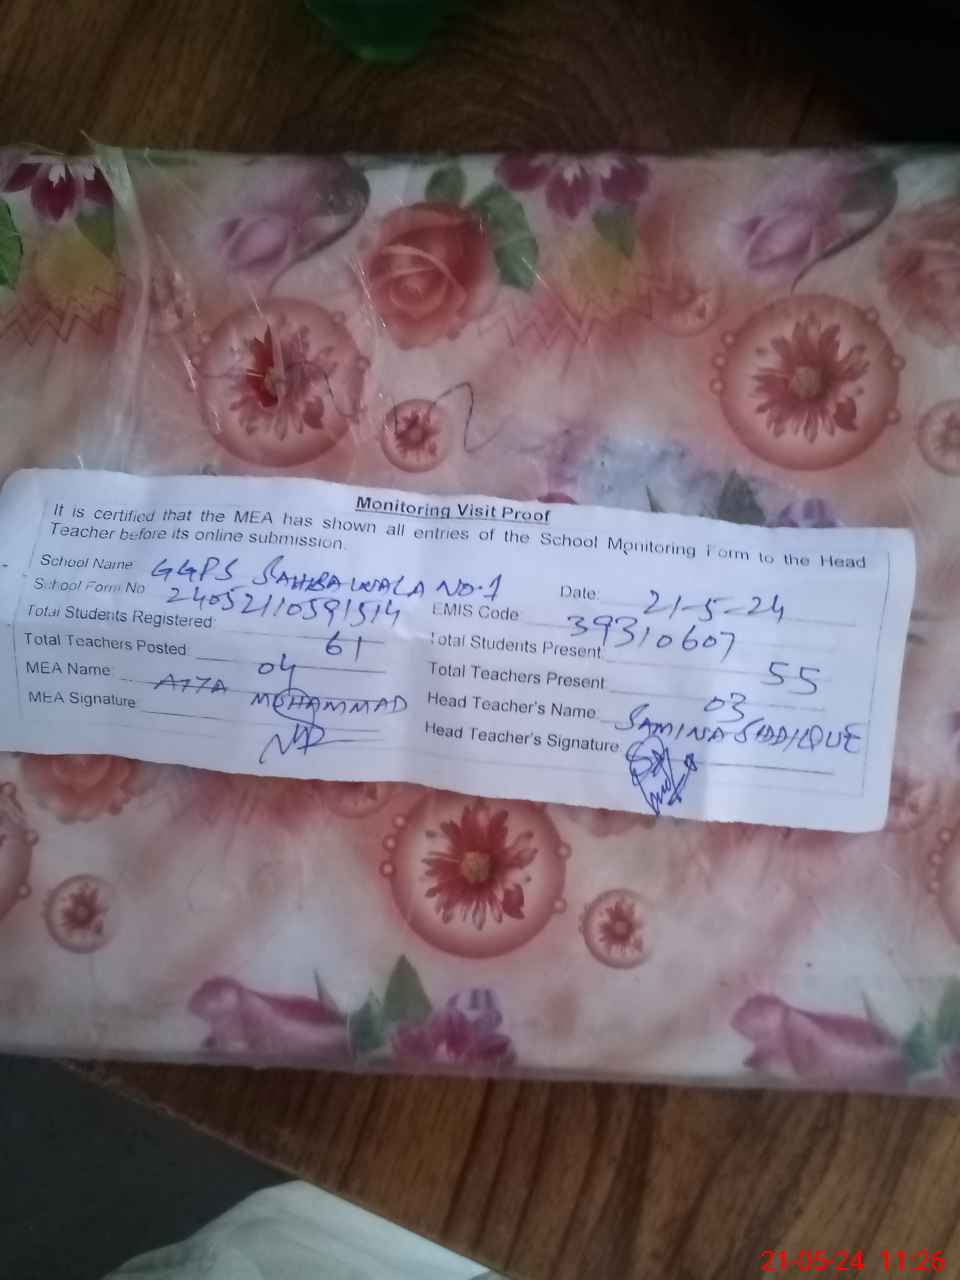 Monitoring Visit Proof
It is certified that the MEA has shown all entries of the School Monitoring Form to the Head
Teacher before its online submission.
School Name GGPS SAHIBA WALA NO.1 Date: 21-5-24
School Form No 24052110591514 EMIS Code: 39310607
Total Students Registered: 61 Total Students Present: 55
Total Teachers Posted: 04 Total Teachers Present 03
MEA Name: ATTA MOHAMMAD Head Teacher's Name: SAMINA SIDDIQUE
MEA Signature Head Teacher's Signature
21-05-24 11:26